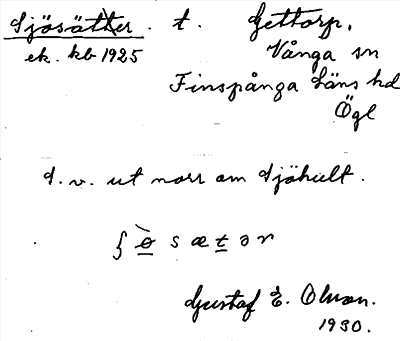 Sjösätter. t. Gettorp.
ek. kb 1925 Vånga sn
Finspånga läns hd
Ögl
S. v. ut norr om Sjöhult.
Gustaf E. Olson.
1930.